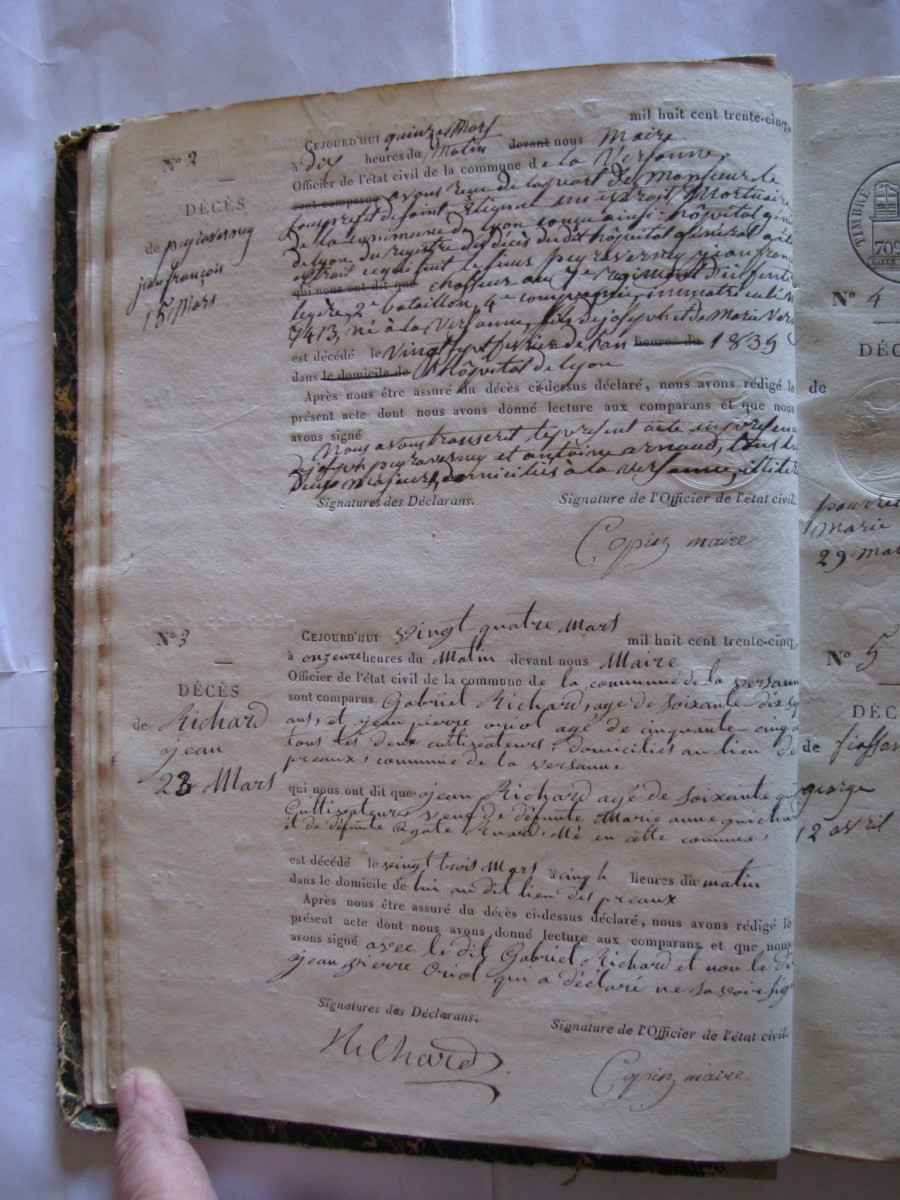 N° 2
DÉCÈS
de peyraverney
jean françois
15 Mars
CEJOURD'HUI quinze Mars mil huit cent trente-cinq,
à dix heures du Matin devant nous Maire
Officier de l'état civil de la commune de la Versanne,
sont comparus avons reçu de la part de Monsieur le
Sous prefet de saint Etienne un extrait Mortuaire
de la commune de Lyon conçu ainsi: hôpital
de Lyon, du registre des décès du dit hôpital général a été
extrait ce qui suit le sieur peyraverney jean
qui nous ont dit que chasseur au 7e regiment d'infanterie
legère, 2e bataillon, 4e compagnie, immatriculé
7413, né à la Versanne, fils de joseph et de Marie
est décédé le Vingt sept fevrier de l'an heures du 1835
dans le domicile de l'hôpital de Lyon
Après nous être assuré du décès ci-dessus déclaré, nous avons rédigé le
présent acte dont nous avons donné lecture aux comparans et que nous
avons signé
Nous avons transcrit le present acte en presence
de joseph peyraverney et antoine arnaud, tous
deux majeurs, domiciliés à la versanne,
Signatures des Déclarans. Signature de l'Officier de l'état civil.
Copin maire
N° 3
DÉCÈS
de Richard
jean
23 Mars
CEJOURD'HUI vingt quatre Mars mil huit cent trente-cinq,
à onze heures du Matin devant nous Maire
Officier de l'état civil de la commune de la commune de la versanne
sont comparus Gabriel Richard, age de soixante dix
ans, et jean pierre oriol agé de cinquante-cinq
tous les deux cultivateurs, domiciliés au lieu de
preaux, commune de la versanne
qui nous ont dit que jean Richard agé de soixante
Cultivateur veuf de défunte Marie anne
et de défunte agate Né en cette commune,
est décédé le vingt trois Mars à cinq heures du matin
dans le domicile de lui au dit lieu des preaux
Après nous être assuré du décès ci-dessus déclaré, nous avons rédigé le
présent acte dont nous avons donné lecture aux comparans et que nous
avons signé avec le dit Gabriel Richard et non le dit
jean pierre Oriol qui a déclaré ne savoir
Signatures des Déclarans. Signature de l'Officier de l'état civil.
Richard
Copin maire
TIMBRE
70
N° 4
DÉC
de
marie
29 mar
N° 5
DÉC
de
george
12 avril